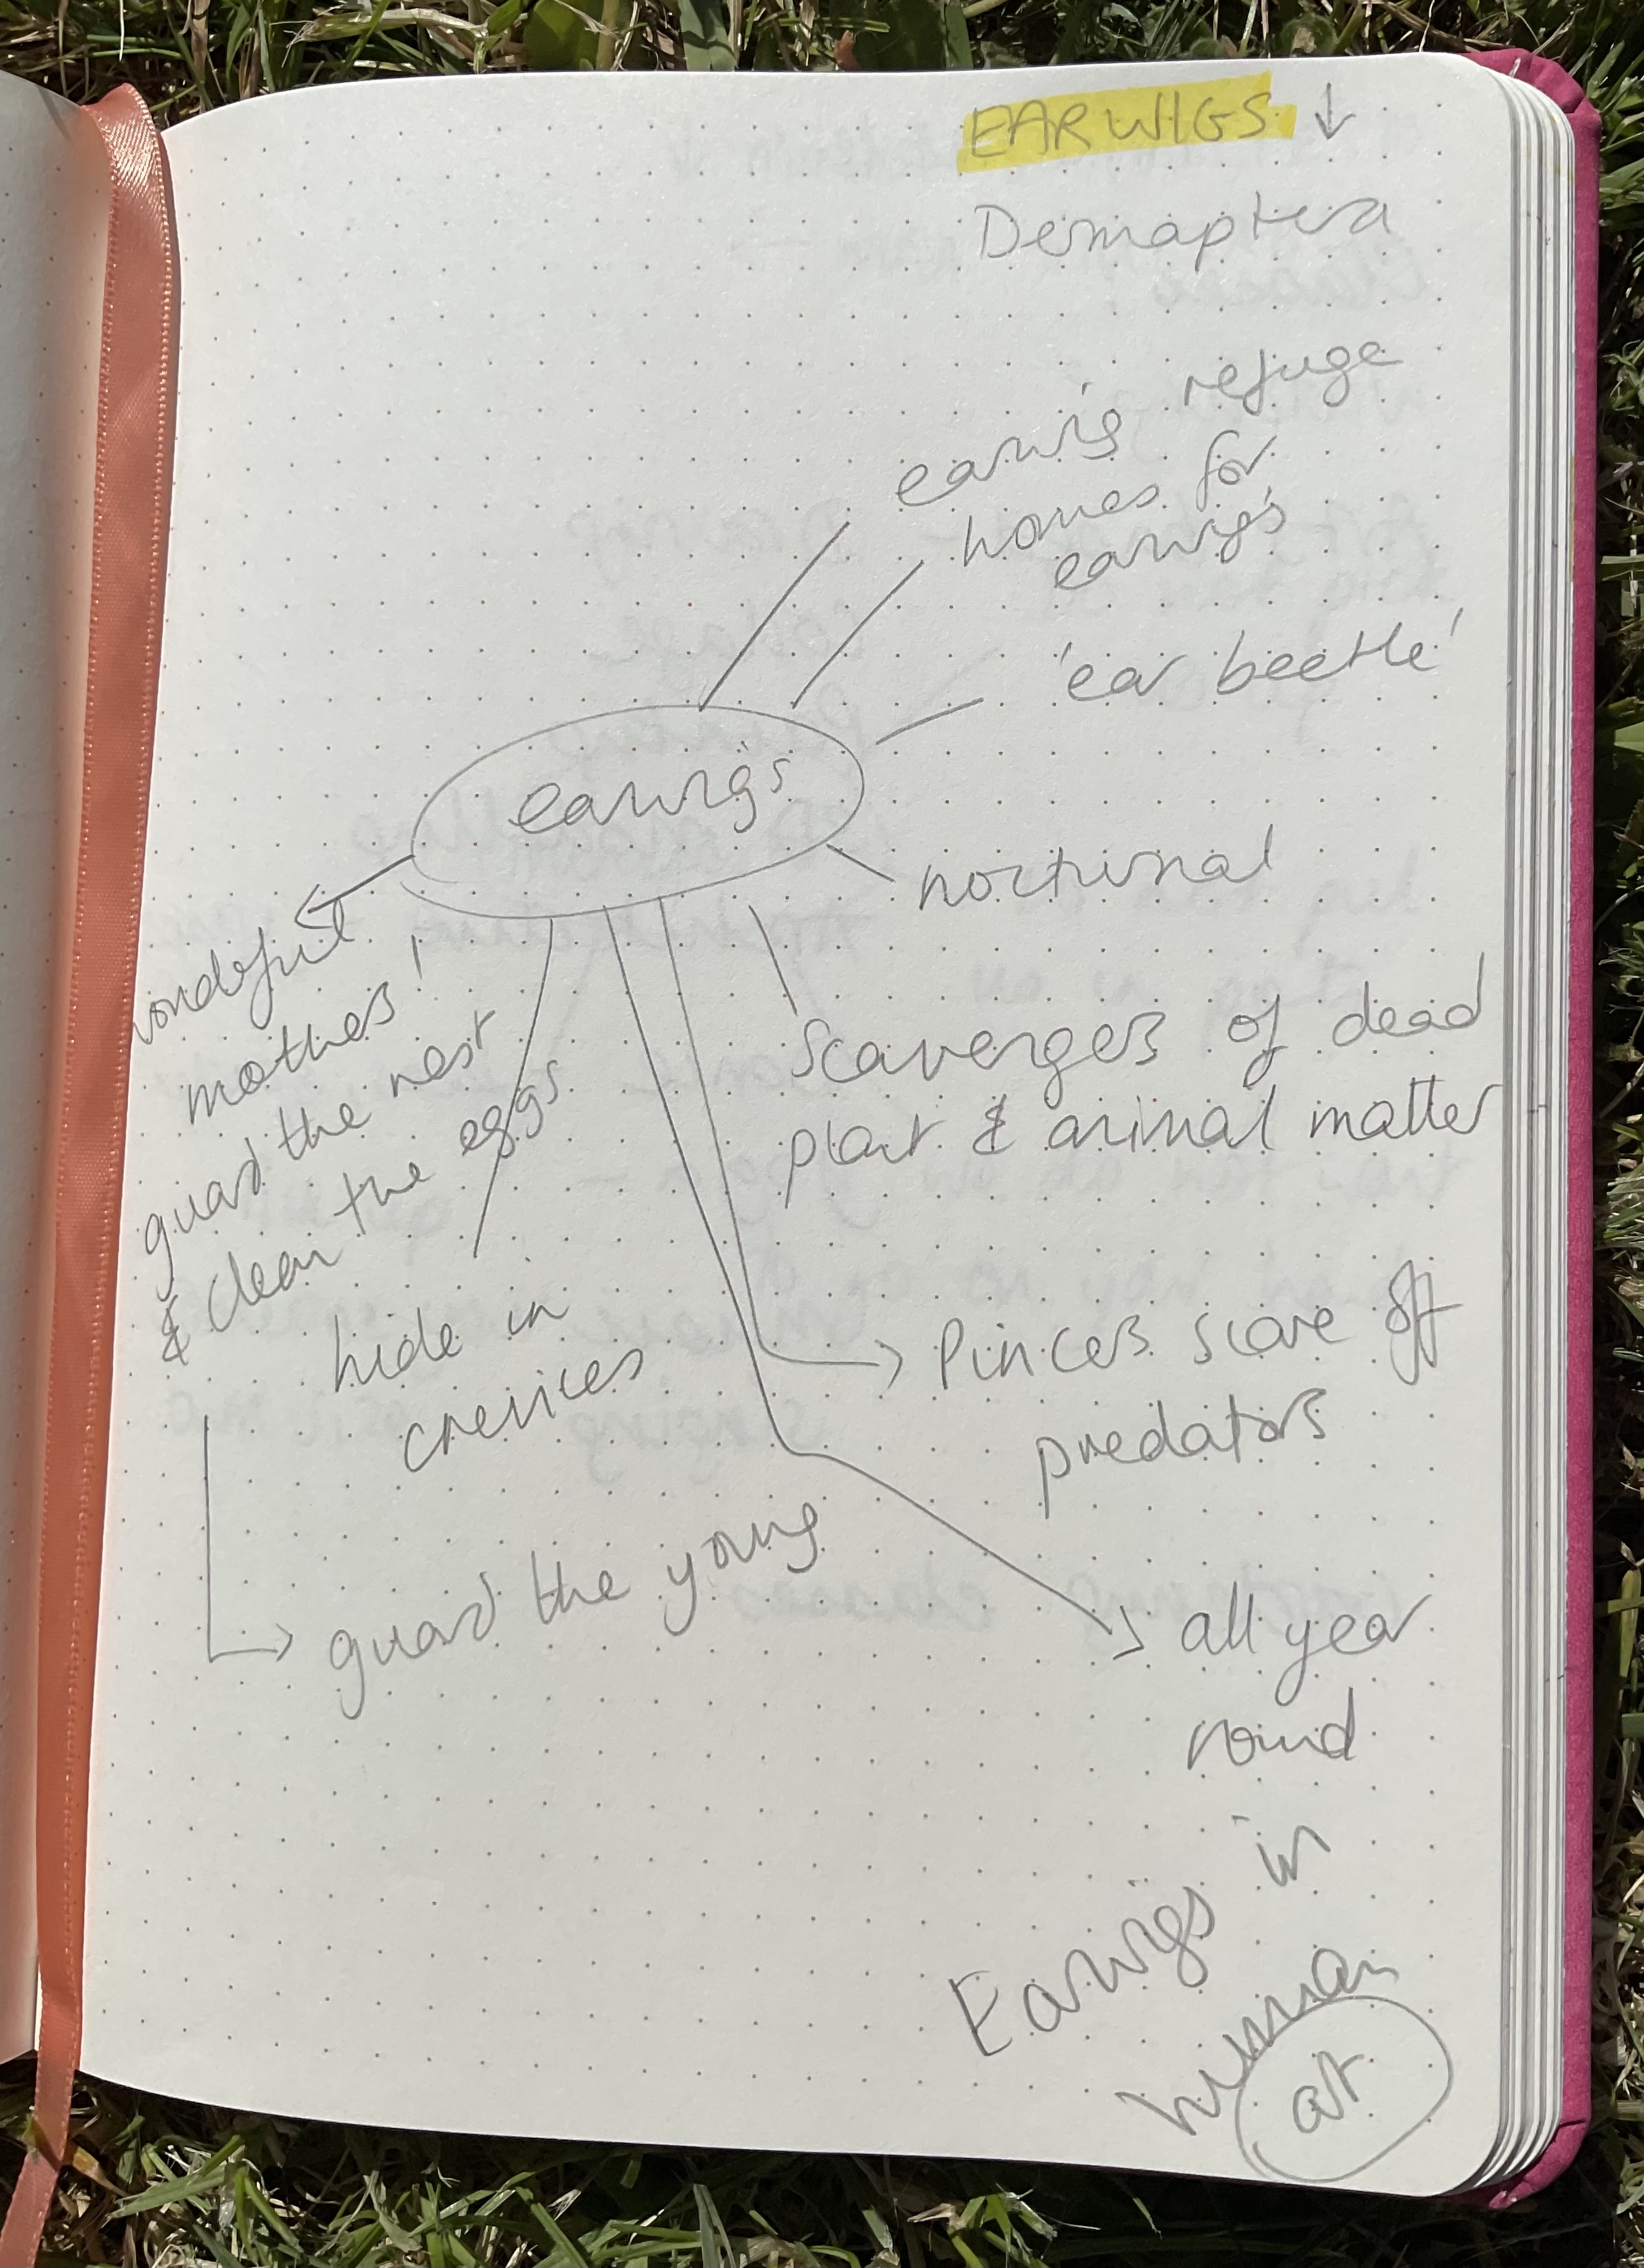 EARWIGS ↓
Dermaptera
earwig refuge
homes for
earwigs
'ear beetle'
earwigs
nocturnal
wonderful
mothers!
guard the nest
& clean the eggs
Scavengers of dead
plant & animal matter
hide in
crevices
Pincers scare off
predators
guard the young
all year
round
Earwigs in
human
art